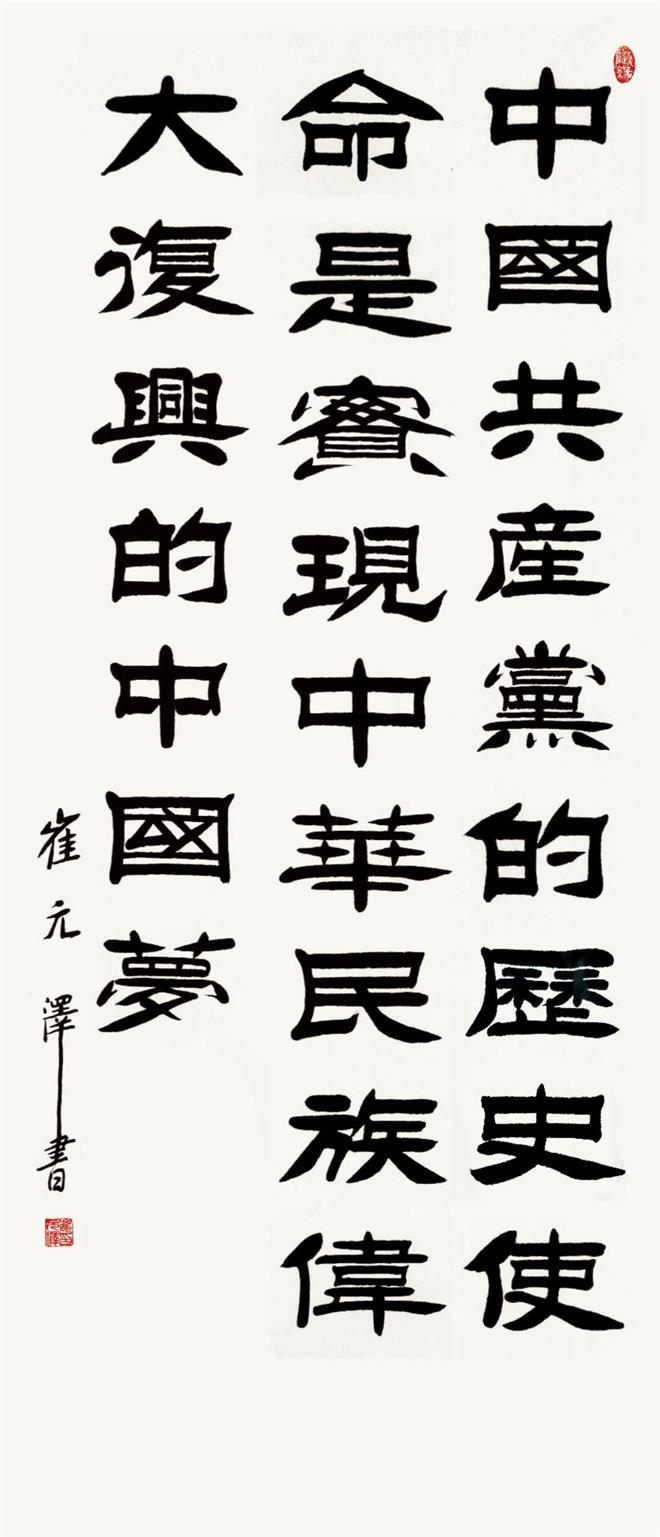 中國共產黨的歷史使
命是實現中華民族偉
大復興的中國夢
崔元澤書